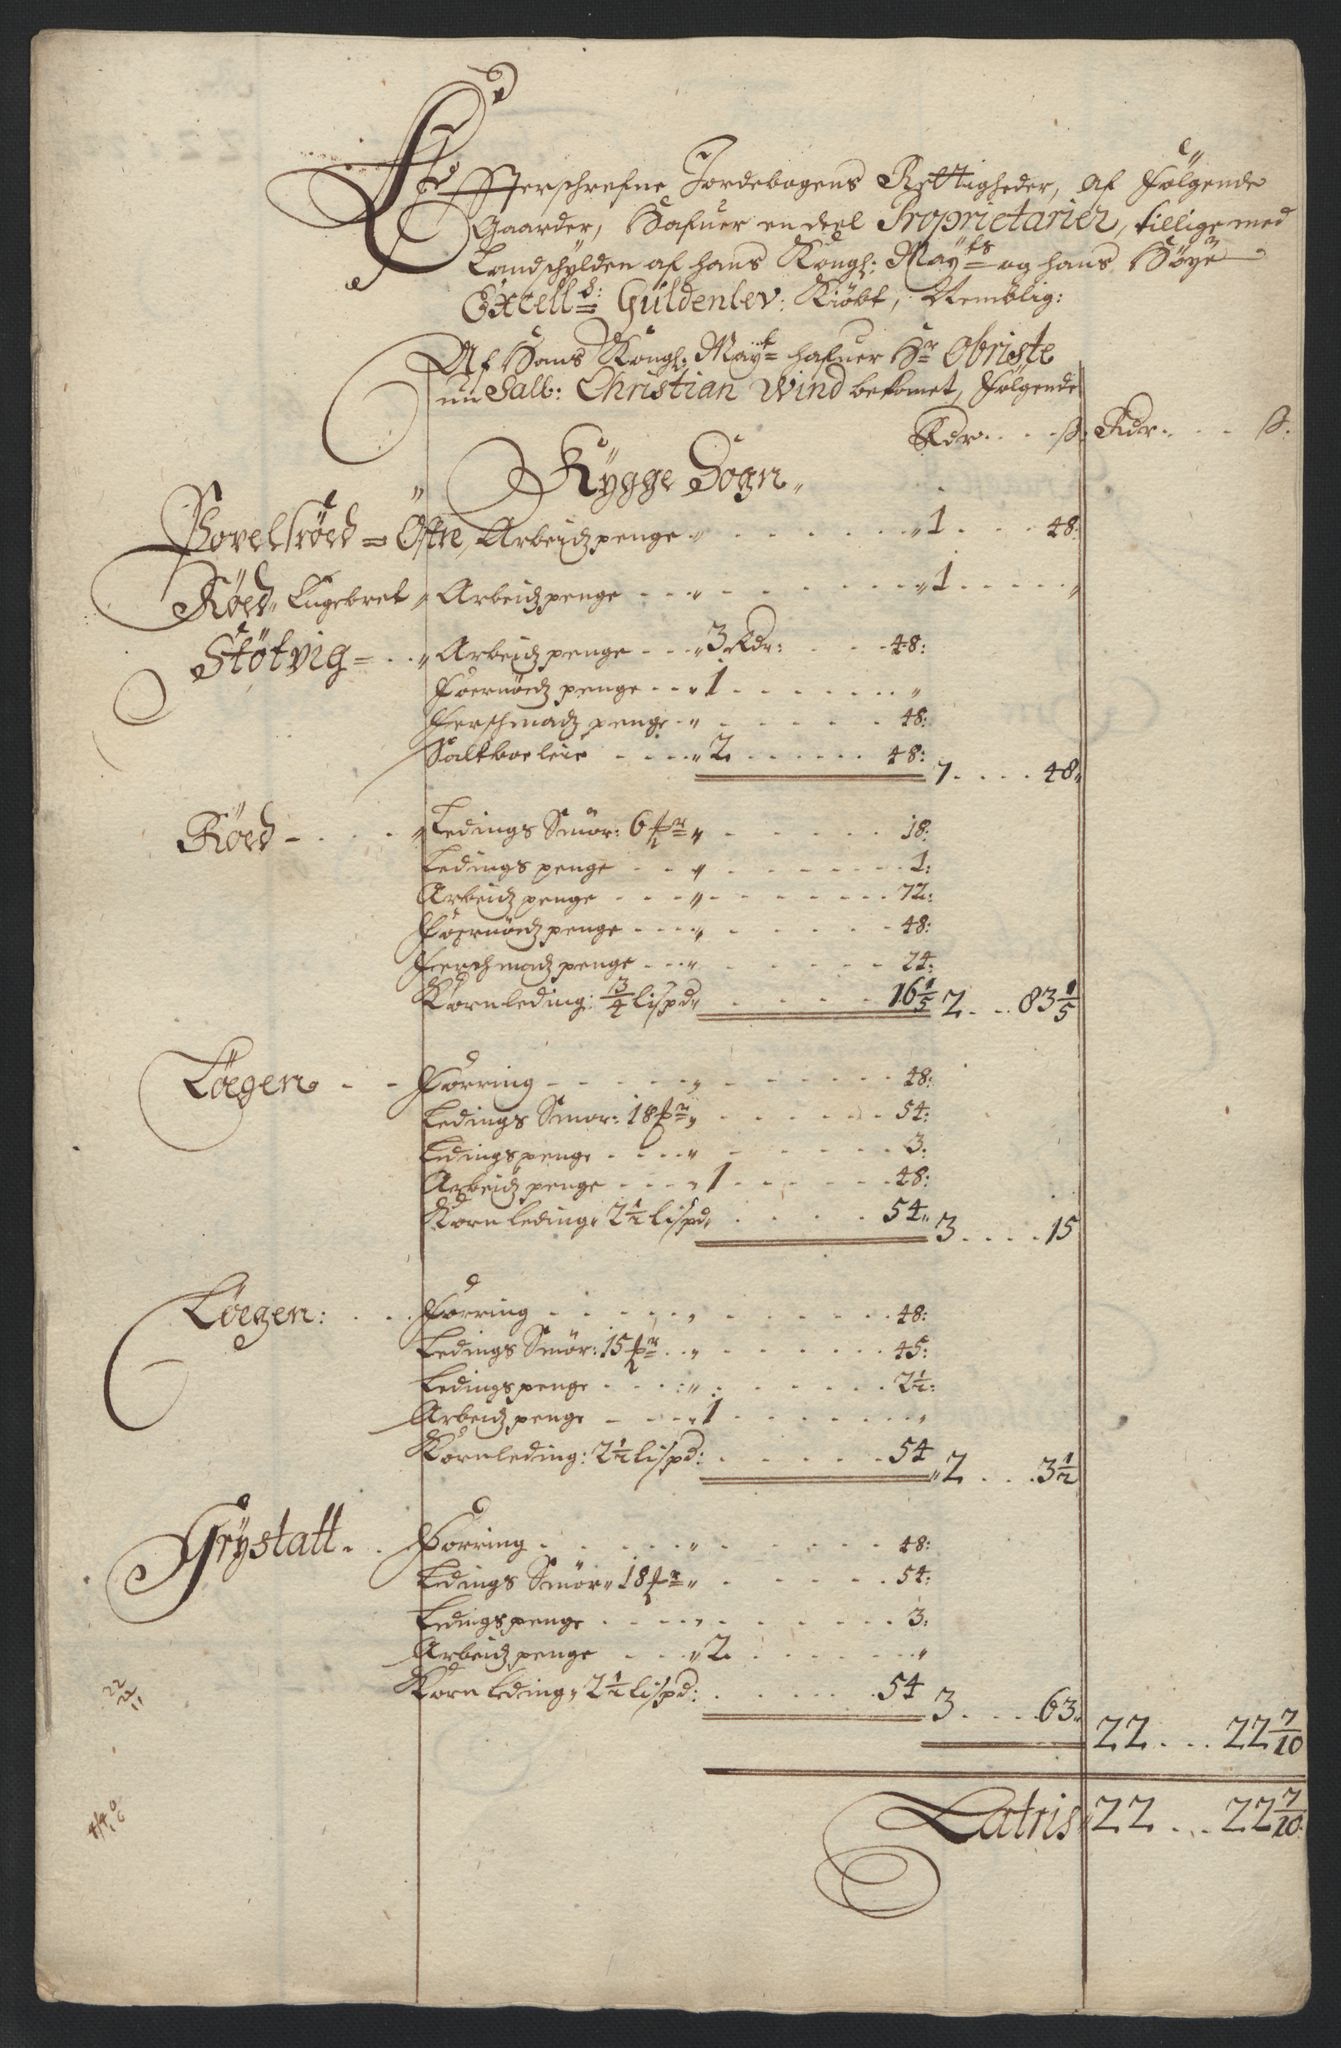 Effterschrefne Jordebogens Rettigheder, af Følgende
Gaarder, Hafuer en deel Proprietarier, tillige med
Landschylden af hans Kongl: Mayts og hans Höye
Excell: Güldenlev: Kiöbt, Nemblig:
Af Hans Kongl: Mayt hafuer Hr Obriste
nu Sall: Christian Wind bekomet, Følgende
Rdr. ß. Rdr. ß.
Rygge Sogn
Bovelsröed = Östre, Arbeidzpenge 1 48:
Röed, Engebret Arbeidzpenge 1 "
Störtvig = Arbeidzpenge 3 Rdr: 48:
Foernöedz penge 1 "
Ferschmadz penge 48:
Saltboe leie 2 48: 7 48
Röed Ledings Smör: 6 18:
Ledings penge 1:
Arbeidzpenge 72:
Foernöedz penge 48:
Ferschmadz penge 24:
Kornleding: 3/4 lispd 16 1/5 2 83 1/5
Löegen Forring 48:
Ledings Smör: 18 54:
Ledingspenge 3:
Arbeidzpenge 1 48:
Korn leding 2 1/4 lispd 54 3 15
Löegen: Forring 48:
Ledings Smör: 15 45:
Ledingspenge 2 1/2:
Arbeidzpenge 1 "
Kornleding: 2 1/4 lispd: 54 2 3 1/2
Grystatt Forring 48:
Ledings Smör 18 54:
Ledingspenge 3:
Arbeidzpenge 2 "
Korn leding 2 1/4 lispd: 54 3 63
22 22 7/10
Latris 22 22 7/10